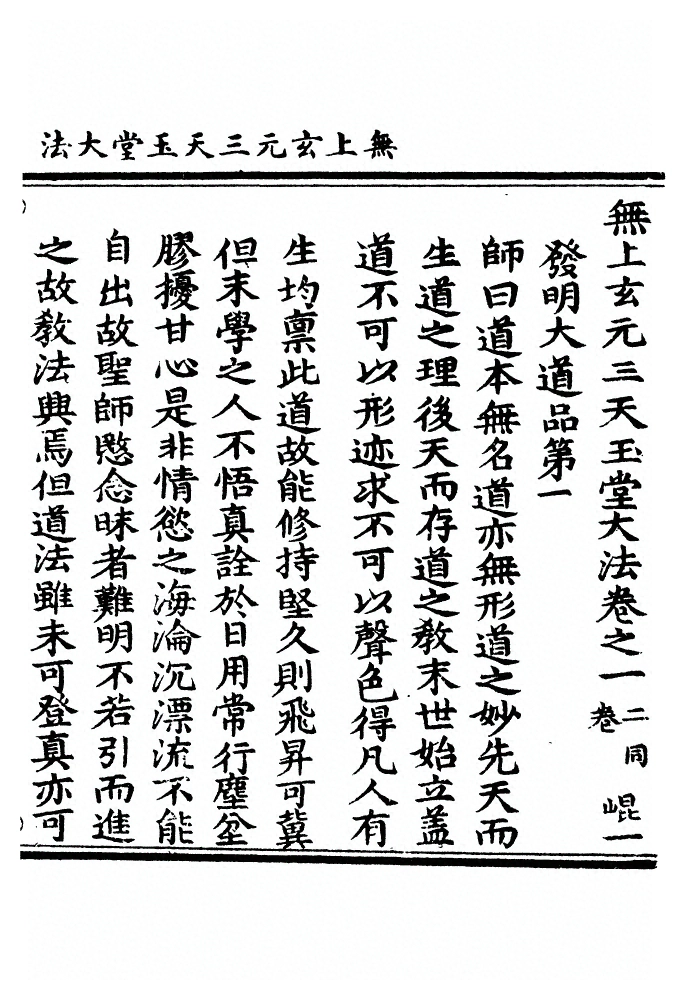 無上玄元三天玉堂大法
無上玄元三天玉堂大法卷之一 二同卷 崐一
發明大道品第一
師曰道本無名道亦無形道之妙先天而
生道之理後天而存道之教末世始立蓋
道不可以形迹求不可以聲色得凡人有
生均禀此道故能修持堅久則飛昇可冀
但末學之人不悟真詮於日用常行塵坌
膠擾甘心是非情慾之海淪沉漂流不能
自出故聖師愍念昧者難明不若引而進
之故教法興焉但道法雖未可登真亦可